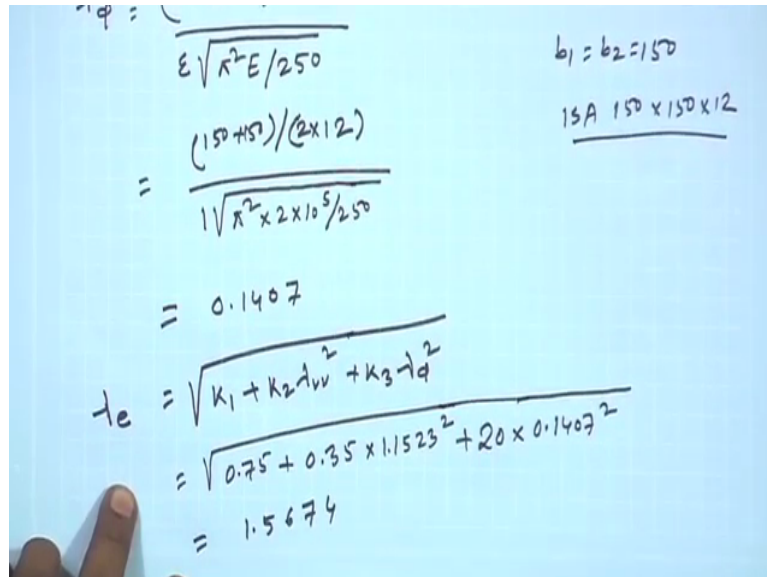 λφ = (
ε√π²E/250
b₁ = b₂ = 150
ISA 150 x 150 x 12
= (150+150)/(2x12)
1√π² x 2 x 10⁵/250
= 0.1407
λe = √K₁ + K₂λvv² + K₃λφ²
= √0.75 + 0.35 x 1.1523² + 20 x 0.1407²
= 1.5674